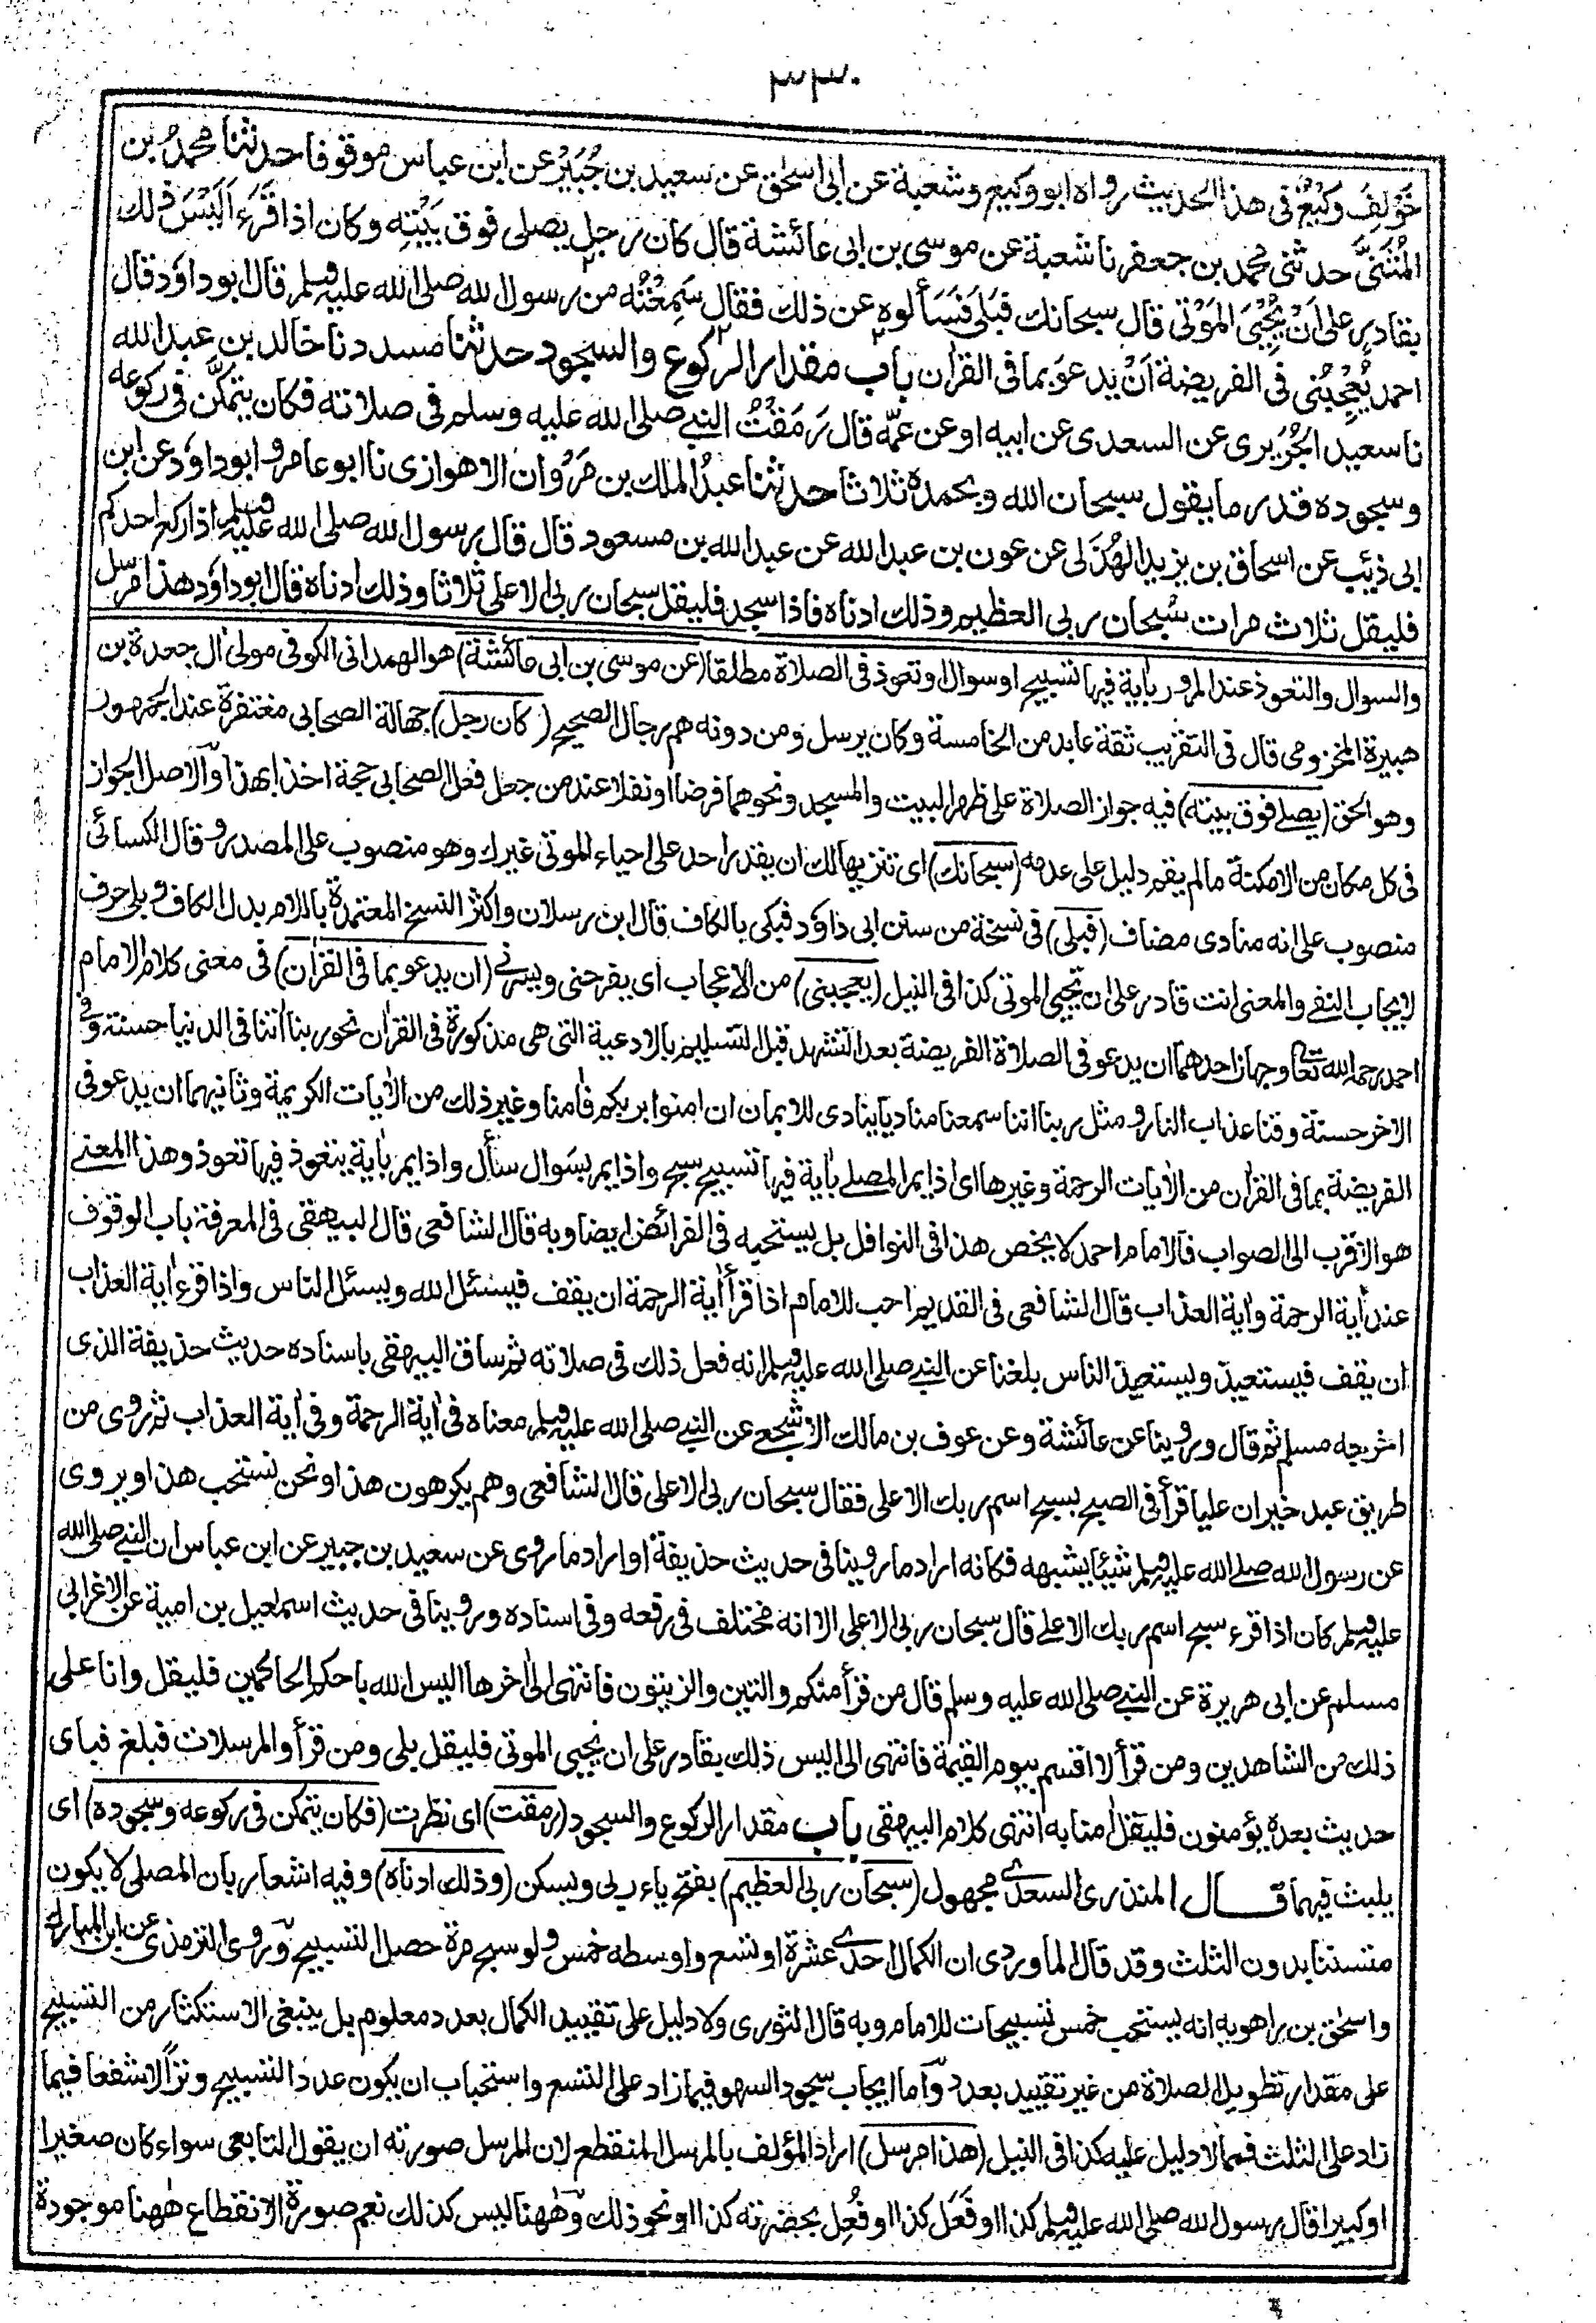 ٣٣٠
خولف وَكِيْعٌ فى هذا الحديث رواه ابو وكيع وشعبة عن ابى اسحٰق عن سعيد بن جُبَيْرٍ عن ابن عباس موقوفا حدثنا محمدُ بن
المُثَنَّى حدثنى محمد بن جعفر نا شعبة عن موسى بن ابى عائشة قال كان رجل يصلى فوق بَيْتِهٖ وكان اذا قَرَءَ اَلَيْسَ ذٰلك
بقادر على اَنْ يُّحْيِىَ المَوْتٰى قال سبحانك فبلى فَسَألوه عن ذلك فقال سَمِعْتُه من رسول الله صلى الله عليه وسلم قال ابو داؤد قال
احمد يُعْجِبُنى فى الفريضة اَنْ يدعوَ بما فى القراٰن باب مقدار الركوع والسجود حدثنا مسدد نا خالد بن عبد الله
نا سعيد الجُرَيرى عن السعدى عن ابيه او عن عمّه قال رَمَقْتُ النبى صلى الله عليه وسلم فى صلاته فكان يتمكّن فى ركوعه
وسجوده قدر ما يقول سبحان الله وبحمده ثلاثا حدثنا عبدُ الملك بن مَرْوان الاهوازى نا ابو عامر و ابو داوٗد عن ابن
ابى ذئب عن اسحاق بن يزيد الهُذَلى عن عون بن عبد الله عن عبد الله بن مسعود قال قال رسول الله صلى الله عليه وسلم اذا ركع احدكم
فليقل ثلاث مرات سُبحان ربى العظيم وذلك ادناه فاذا سجد فليقل سبحان ربى الاعلى ثلاثا وذلك ادناه قال ابو داوٗد هذا مرسل
والسوال والتعوذ عند المرور باٰية فيها تسبيح او سوال او تعوذ فى الصلاة مطلقا (عن موسى بن ابى عائشة) هو الهمدانى الكوفى مولى اٰل جعدة بن
هبيرة المخزومى قال فى التقريب ثقة عابد من الخامسة وكان يرسل ومن دونه هم رجال الصحيح (كان رجل) جهالة الصحابى مغتفرة عند الجمهور
وهو الحق (يصلے فوق بيته) فيه جواز الصلاة على ظهر البيت والمسجد ونحوهما فرضا او نفلا عند من جعل فعل الصحابى حجة اخذا بهذا والاصل الجواز
فى كل مكان من الامكنة ما لم يقم دليل على عدمه (سبحانك) اى تنزيها لك ان يقدر احد على احياء الموتى غيرك وهو منصوب على المصدر وقال الكسائى
منصوب على انه منادى مضاف (فبلى) فى نسخة من سنن ابى داوٗد فبكى بالكاف قال ابن رسلان واكثر النسخ المعتمدة باللام بدل الكاف وبلى حرف
لايجاب النفے والمعنى انت قادر على ان تحيى الموتى كذا فى النيل (يعجبنى) من الاعجاب اى يفرحنى ويسرنے (ان يدعو بما فى القراٰن) فى معنى كلام الامام
احمد رحمه الله تعالى وجهان احدهما ان يدعو فى الصلاة الفريضة بعد التشهد قبل التسليم بالادعية التى هى مذكورة فى القراٰن نحو ربنا اٰتنا فى الدنيا حسنة وفے
الاخر حسنة وقنا عذاب النار ومثل ربنا اننا سمعنا مناديا ينادى للايمان ان اٰمنوا بربكم فاٰمنا وغير ذلك من الاٰيات الكريمة وثانيهما ان يدعو فى
الفريضة بما فى القراٰن من الاٰيات الرحمة وغيرها اى اذا يمر المصلے باٰية فيها تسبيح سبح واذا يمر بسوال سأل واذا يمر باٰية يتعوذ فيها تعوذ وهذا المعنے
هو الاقرب الى الصواب فالامام احمد لا يخص هذا فى النوافل بل يستحبه فى الفرائض ايضا وبه قال الشافعى قال البيهقى فى المعرفة باب الوقوف
عند اٰية الرحمة واٰية العذاب قال الشافعى فى القديم احب للامام اذا قرأ اٰية الرحمة ان يقف فيسئل الله ويسئل الناس واذا قرء اٰية العذاب
ان يقف فيستعيذ ويستعيذ الناس بلغنا عن النبے صلى الله عليه وسلم انه فعل ذلك فى صلاته ثم ساق البيهقى باسناده حديث حذيفة الذى
اخرجه مسلم ثم قال وروينا عن عائشة وعن عوف بن مالك الاشجعے عن النبے صلى الله عليه وسلم معناه فى اٰية الرحمة وفى اٰية العذاب ثم روى من
طريق عبد خير ان عليا قرأ فى الصبح بسبح اسم ربك الاعلى فقال سبحان ربى الاعلى قال الشافعى وهم يكرهون هذا ونحن نستحب هذا ويروى
عن رسول الله صلے الله عليه وسلم شيئا يشبهه فكانه اراد ما روينا فى حديث حذيفة او اراد ما روى عن سعيد بن جبير عن ابن عباس ان النبے صلى الله
عليه وسلم كان اذا قرء سبح اسم ربك الاعلے قال سبحان ربى الاعلى الا انه مختلف فى رفعه وفى اسناده وروينا فى حديث اسمعيل بن امية عن الاعرابى
مسلم عن ابى هريرة عن النبے صلى الله عليه وسلم قال من قرأ منكم والتين والزيتون فانتهى الى اٰخرها اليس الله باحكم الحاكمين فليقل وانا على
ذلك من الشاهدين ومن قرأ لا اقسم بيوم القيٰمة فانتهى الى اليس ذلك بقادر على ان يحيى الموتى فليقل بلى ومن قرأ والمرسلات فبلغ فباى
حديث بعده يؤمنون فليقل اٰمنا به انتهى كلام البيهقى باب مقدار الركوع والسجود (رمقت) اى نظرت (فكان يتمكن فى ركوعه وسجوده) اى
يلبث فيهما قال المنذرى السعدے مجهول (سبحان ربى العظيم) بفتح ياء ربى ويسكن (وذلك ادناه) وفيه اشعار بان المصلى لا يكون
متسننا بدون الثلث وقد قال الماوردى ان الكمال احدے عشرة او تسع واوسطه خمس ولو سبح مرة حصل التسبيح وروى الترمذى عن ابن المبارك
واسحٰق بن راهويه انه يستحب خمس تسبيحات للامام وبه قال الثورى ولا دليل على تقييد الكمال بعدد معلوم بل ينبغى الاستكثار من التسبيح
على مقدار تطويل الصلاة من غير تقييد بعدد واما ايجاب سجود السهو فيما زاد على التسع واستحباب ان يكون عدد التسبيح وترًا لا شفعا فيما
زاد على الثلث فمما لا دليل عليه كذا فى النيل (هذا مرسل) اراد المؤلف بالمرسل المنقطع لان المرسل صورته ان يقول التابعى سواء كان صغيرا
او كبيرا قال رسول الله صلى الله عليه وسلم كذا او فَعَل كذا او فُعِل بحضرته كذا او نحو ذلك وهٰهنا ليس كذلك نعم صورة الانقطاع هٰهنا موجودة